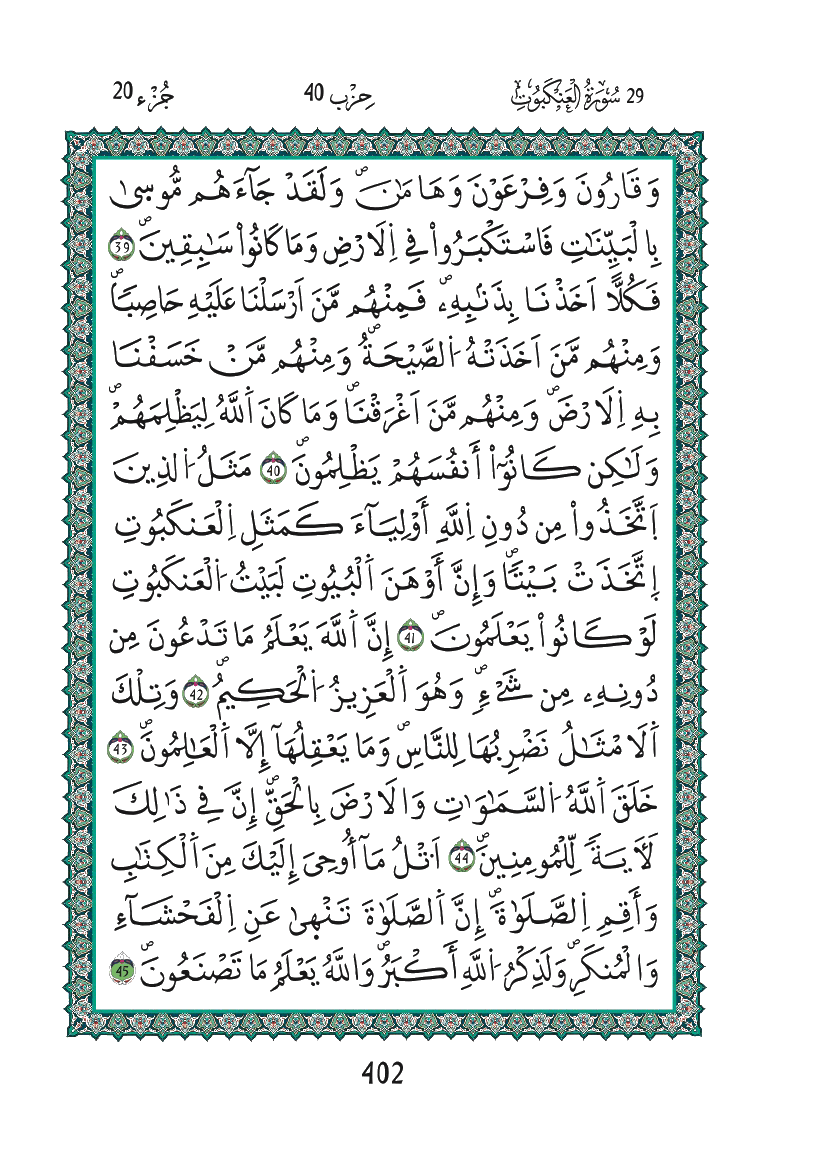 29 سُورَةُ الْعَنكَبُوتِ حِزْب 40 جُزْء 20
وَقَٰرُونَ وَفِرْعَوْنَ وَهَٰمَٰنَۖ وَلَقَدْ جَآءَهُم مُّوسۭىٰ
بِالْبَيِّنَٰتِ فَاسْتَكْبَرُواْ فِے اِ۬لَارْضِ وَمَا كَانُواْ سَٰبِقِينَۖ 39
فَكُلّاً اَخَذْنَا بِذَنۢبِهِۦۖ فَمِنْهُم مَّنَ اَرْسَلْنَا عَلَيْهِ حَاصِباٗۖ
وَمِنْهُم مَّنَ اَخَذَتْهُ اُ۬لصَّيْحَةُۖ وَمِنْهُم مَّنْ خَسَفْنَا
بِهِ اِ۬لَارْضَۖ وَمِنْهُم مَّنَ اَغْرَقْنَاۖ وَمَا كَانَ اَ۬للَّهُ لِيَظْلِمَهُمْۖ
وَلَٰكِن كَانُوٓاْ أَنفُسَهُمْ يَظْلِمُونَۖ 40 مَثَلُ اُ۬لذِينَ
اَ۪تَّخَذُواْ مِن دُونِ اِ۬للَّهِ أَوْلِيَآءَ كَمَثَلِ اِ۬لْعَنكَبُوتِ
اِ۪تَّخَذَتْ بَيْتاٗۖ وَإِنَّ أَوْهَنَ اَ۬لْبُيُوتِ لَبَيْتُ اُ۬لْعَنكَبُوتِ
لَوْ كَانُواْ يَعْلَمُونَۖ 41 إِنَّ اَ۬للَّهَ يَعْلَمُ مَا تَدْعُونَ مِن
دُونِهِۦ مِن شَےْءٖۖ وَهُوَ اَ۬لْعَزِيزُ اُ۬لْحَكِيمُۖ 42 وَتِلْكَ
اَ۬لَامْثَٰلُ نَضْرِبُهَا لِلنَّاسِۖ وَمَا يَعْقِلُهَآ إِلَّا اَ۬لْعَٰلِمُونَۖ 43
خَلَقَ اَ۬للَّهُ اُ۬لسَّمَٰوَٰتِ وَالَارْضَ بِالْحَقِّۖ إِنَّ فِے ذَٰلِكَ
لَأٓيَةٗ لِّلْمُومِنِينَۖ 44 اَ۟تْلُ مَآ أُوحِىَ إِلَيْكَ مِنَ اَ۬لْكِتَٰبِ
وَأَقِمِ اِ۬لصَّلَوٰةَۖ إِنَّ اَ۬لصَّلَوٰةَ تَنْهىٰ عَنِ اِ۬لْفَحْشَآءِ
وَالْمُنكَرِۖ وَلَذِكْرُ اُ۬للَّهِ أَكْبَرُۖ وَاللَّهُ يَعْلَمُ مَا تَصْنَعُونَۖ 45
402